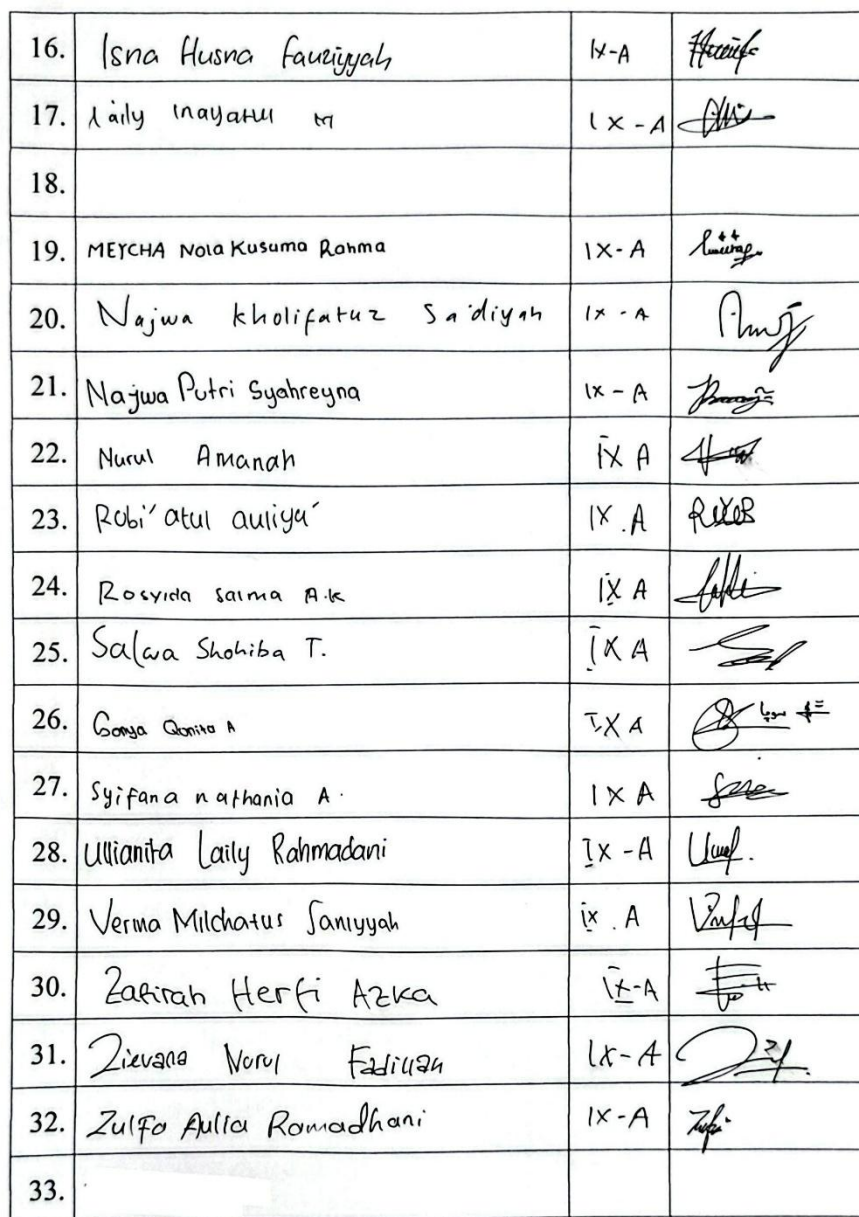 16. Isna Husna Fauziyyah IX-A
17. Laily Inayatul M IX-A
18.
19. MEYCHA Nola Kusuma Rahma IX-A
20. Najwa kholifatuz Sa'diyah IX-A
21. Najwa Putri Syahreyna IX-A
22. Nurul Amanah IX A
23. Robi'atul auliya' IX.A
24. Rosyida salma A.K IX A
25. Salwa Shohiba T. IX A
26. Sonya Qonita A IX A
27. Syifana nathania A. IX A
28. Ullianita Laily Rahmadani IX-A
29. Verma Milchatus Saniyyah IX.A
30. Zafirah Herfi Azka IX-A
31. Zievana Nurul Fadillah IX-A
32. Zulfa Aulia Ramadhani IX-A
33.